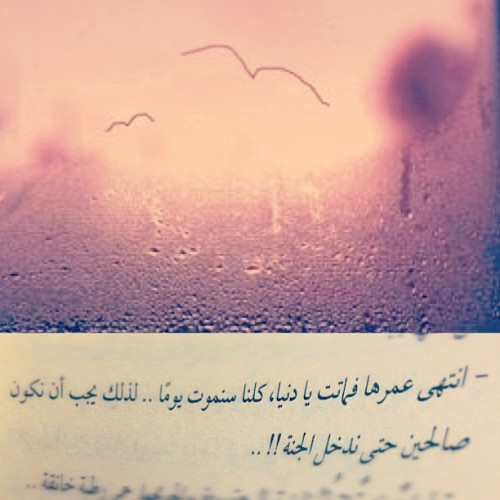 - انتهى عمرها فماتت يا دنيا، كلنا سنموت يومًا .. لذلك يجب أن نكون
صالحين حتى ندخل الجنة !! ..